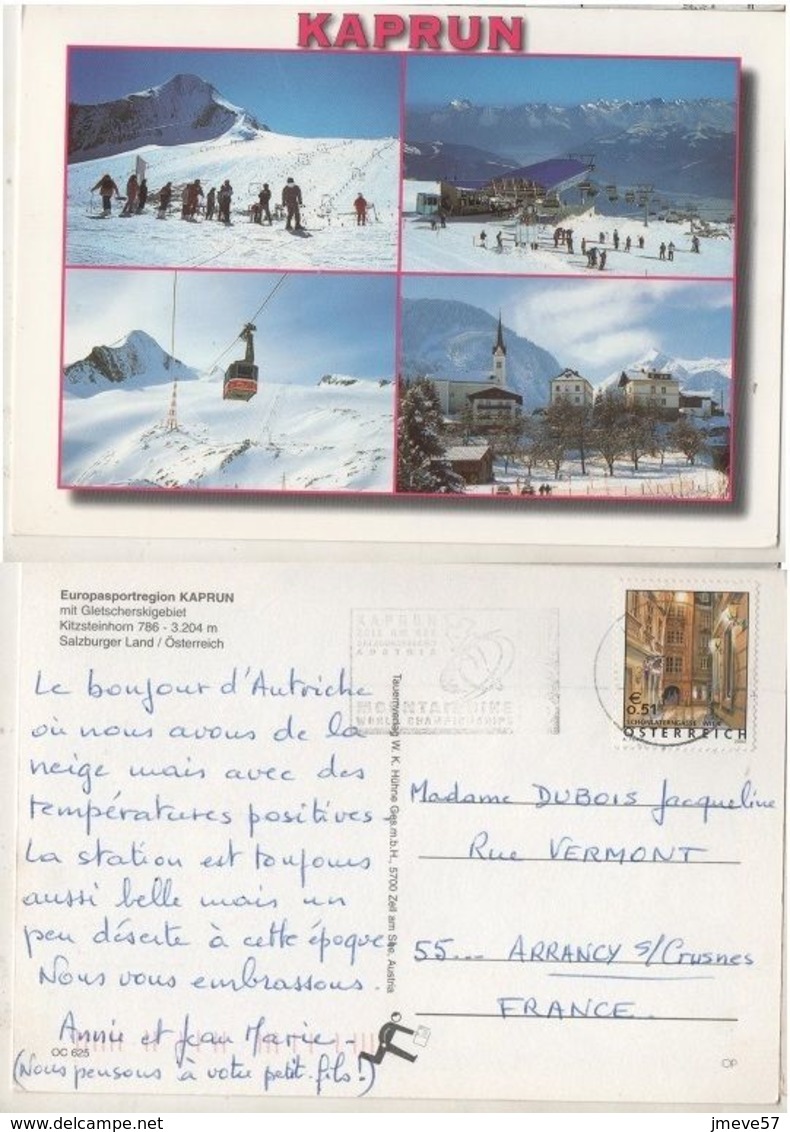 KAPRUN
Europasportregion KAPRUN
mit Gletscherskigebiet
Kitzsteinhorn 786 - 3.204 m
Salzburger Land / Österreich
KAPRUN
ZELL AM SEE
AUSTRIA
MOUNTAINBIKE
WORLD CHAMPIONSHIPS
€
0.51
SCHÖNLATERNGASSE, WIEN
ÖSTERREICH
Le bonjour d'Autriche
où nous avons de la
neige mais avec des
températures positives.
La station est toujours
aussi belle mais un
peu déserte à cette époque
Nous vous embrassons.
Annie et Jean Marie -
(Nous pensons à votre petit-fils!)
OC 625
Tauernverlag W. K. Hühne Ges.m.b.H., 5700 Zell am See, Austria
Madame DUBOIS Jacqueline
Rue VERMONT
55... ARRANCY s/Crusnes
FRANCE
OP
jmeve57